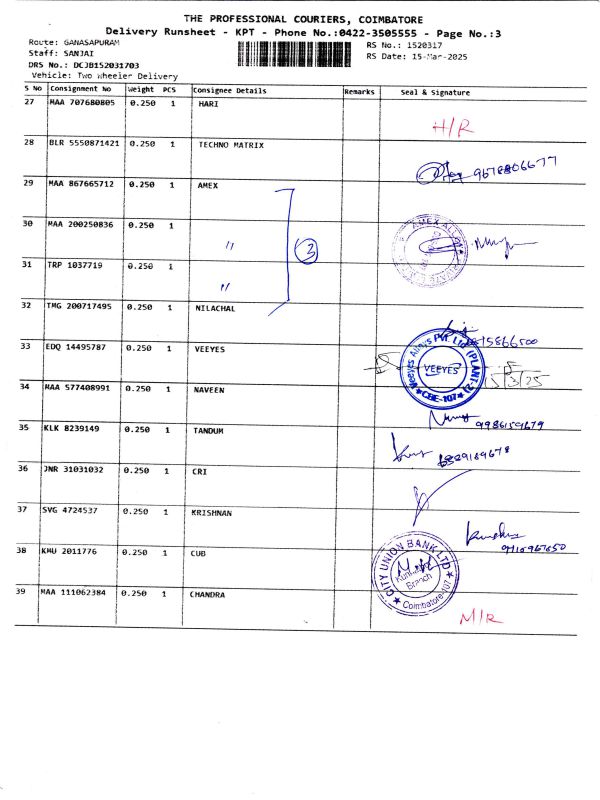 THE PROFESSIONAL COURIERS, COIMBATORE
Delivery Runsheet - KPT - Phone No.:0422-3505555 - Page No.:3
Route: GANASAPURAM
RS No.: 1520317
Staff: SANJAI
RS Date: 15-Mar-2025
DRS No.: DCJB152031703
Vehicle: Two Wheeler Delivery
S No Consignment No Weight PCS Consignee Details Remarks Seal & Signature
27 MAA 707680805 0.250 1 HARI
H/R
28 BLR 5550871421 0.250 1 TECHNO MATRIX
9678806677
29 MAA 867665712 0.250 1 AMEX
30 MAA 200250836 0.250 1
" 3
AMEX ALLOYS
31 TRP 1037719 0.250 1
"
32 TMG 200717495 0.250 1 NILACHAL
15866500
33 EDQ 14495787 0.250 1 VEEYES
Veeyes Alloys PVT. Ltd (PLANT-2)
VEEYES
CBE-107
15/3/25
34 MAA 577408991 0.250 1 NAVEEN
9986159679
35 KLK 8239149 0.250 1 TANDUM
36 JNR 31031032 0.250 1 CRI
37 SVG 4724537 0.250 1 KRISHNAN
38 KMU 2011776 0.250 1 CUB
CITY UNION BANK LTD
Branch
Coimbatore-107
39 MAA 111062384 0.250 1 CHANDRA
M/R